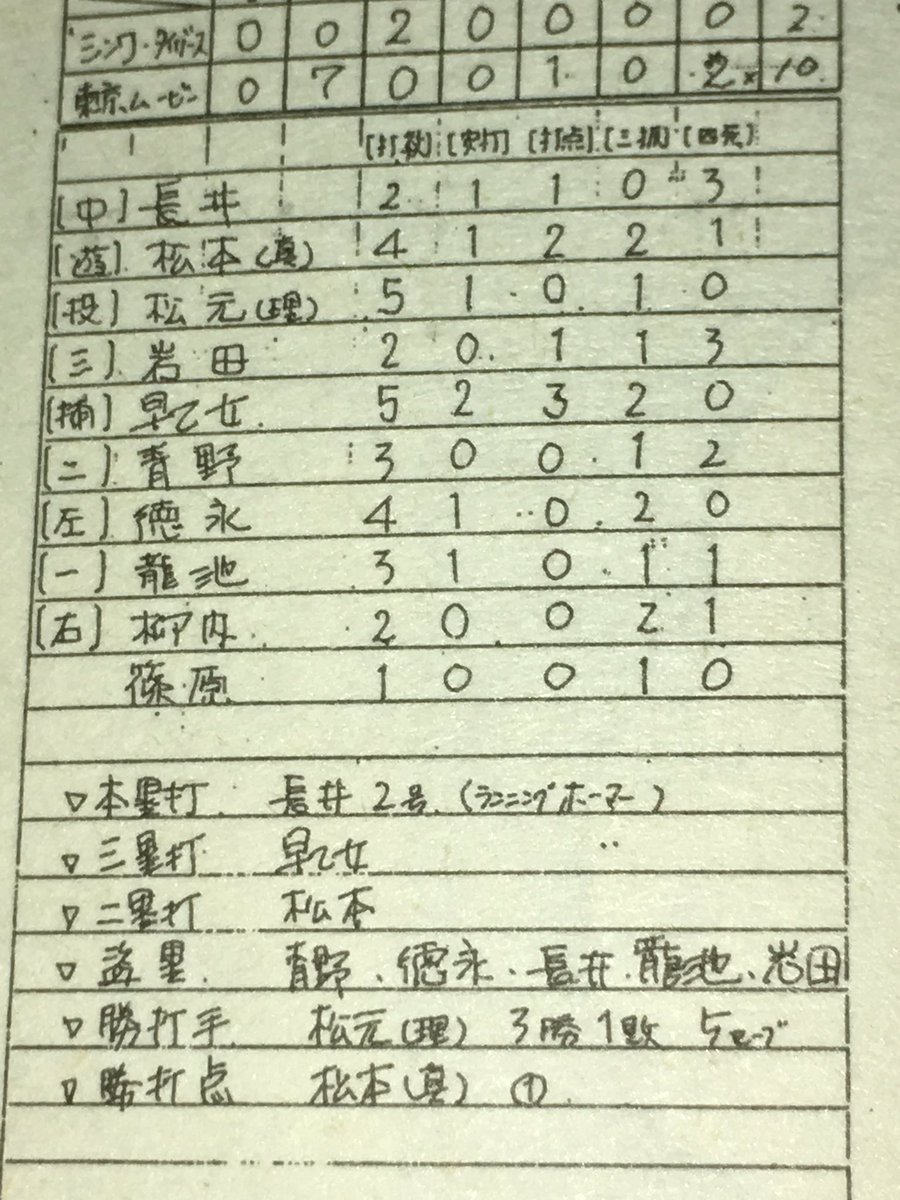 シンク・タイガース 0 0 2 0 0 0 0 2
東京ムービー 0 7 0 0 1 0 2x 10
[打数] [安打] [打点] [三振] [四死]
[中] 長井 2 1 1 0 3
[遊] 松本(真) 4 1 2 2 1
[投] 松元(理) 5 1 0 1 0
[三] 岩田 2 0 1 1 3
[捕] 早乙女 5 2 3 2 0
[二] 青野 3 0 0 1 2
[左] 徳永 4 1 0 2 0
[一] 龍池 3 1 0 1 1
[右] 柳内 2 0 0 2 1
篠原 1 0 0 1 0
▽本塁打 長井 2号 (ランニングホーマー)
▽三塁打 早乙女
▽二塁打 松本
▽盗塁 青野、徳永、長井、龍池、岩田
▽勝打手 松元(理) 3勝1敗 5セーブ
▽勝打点 松本(真) ①